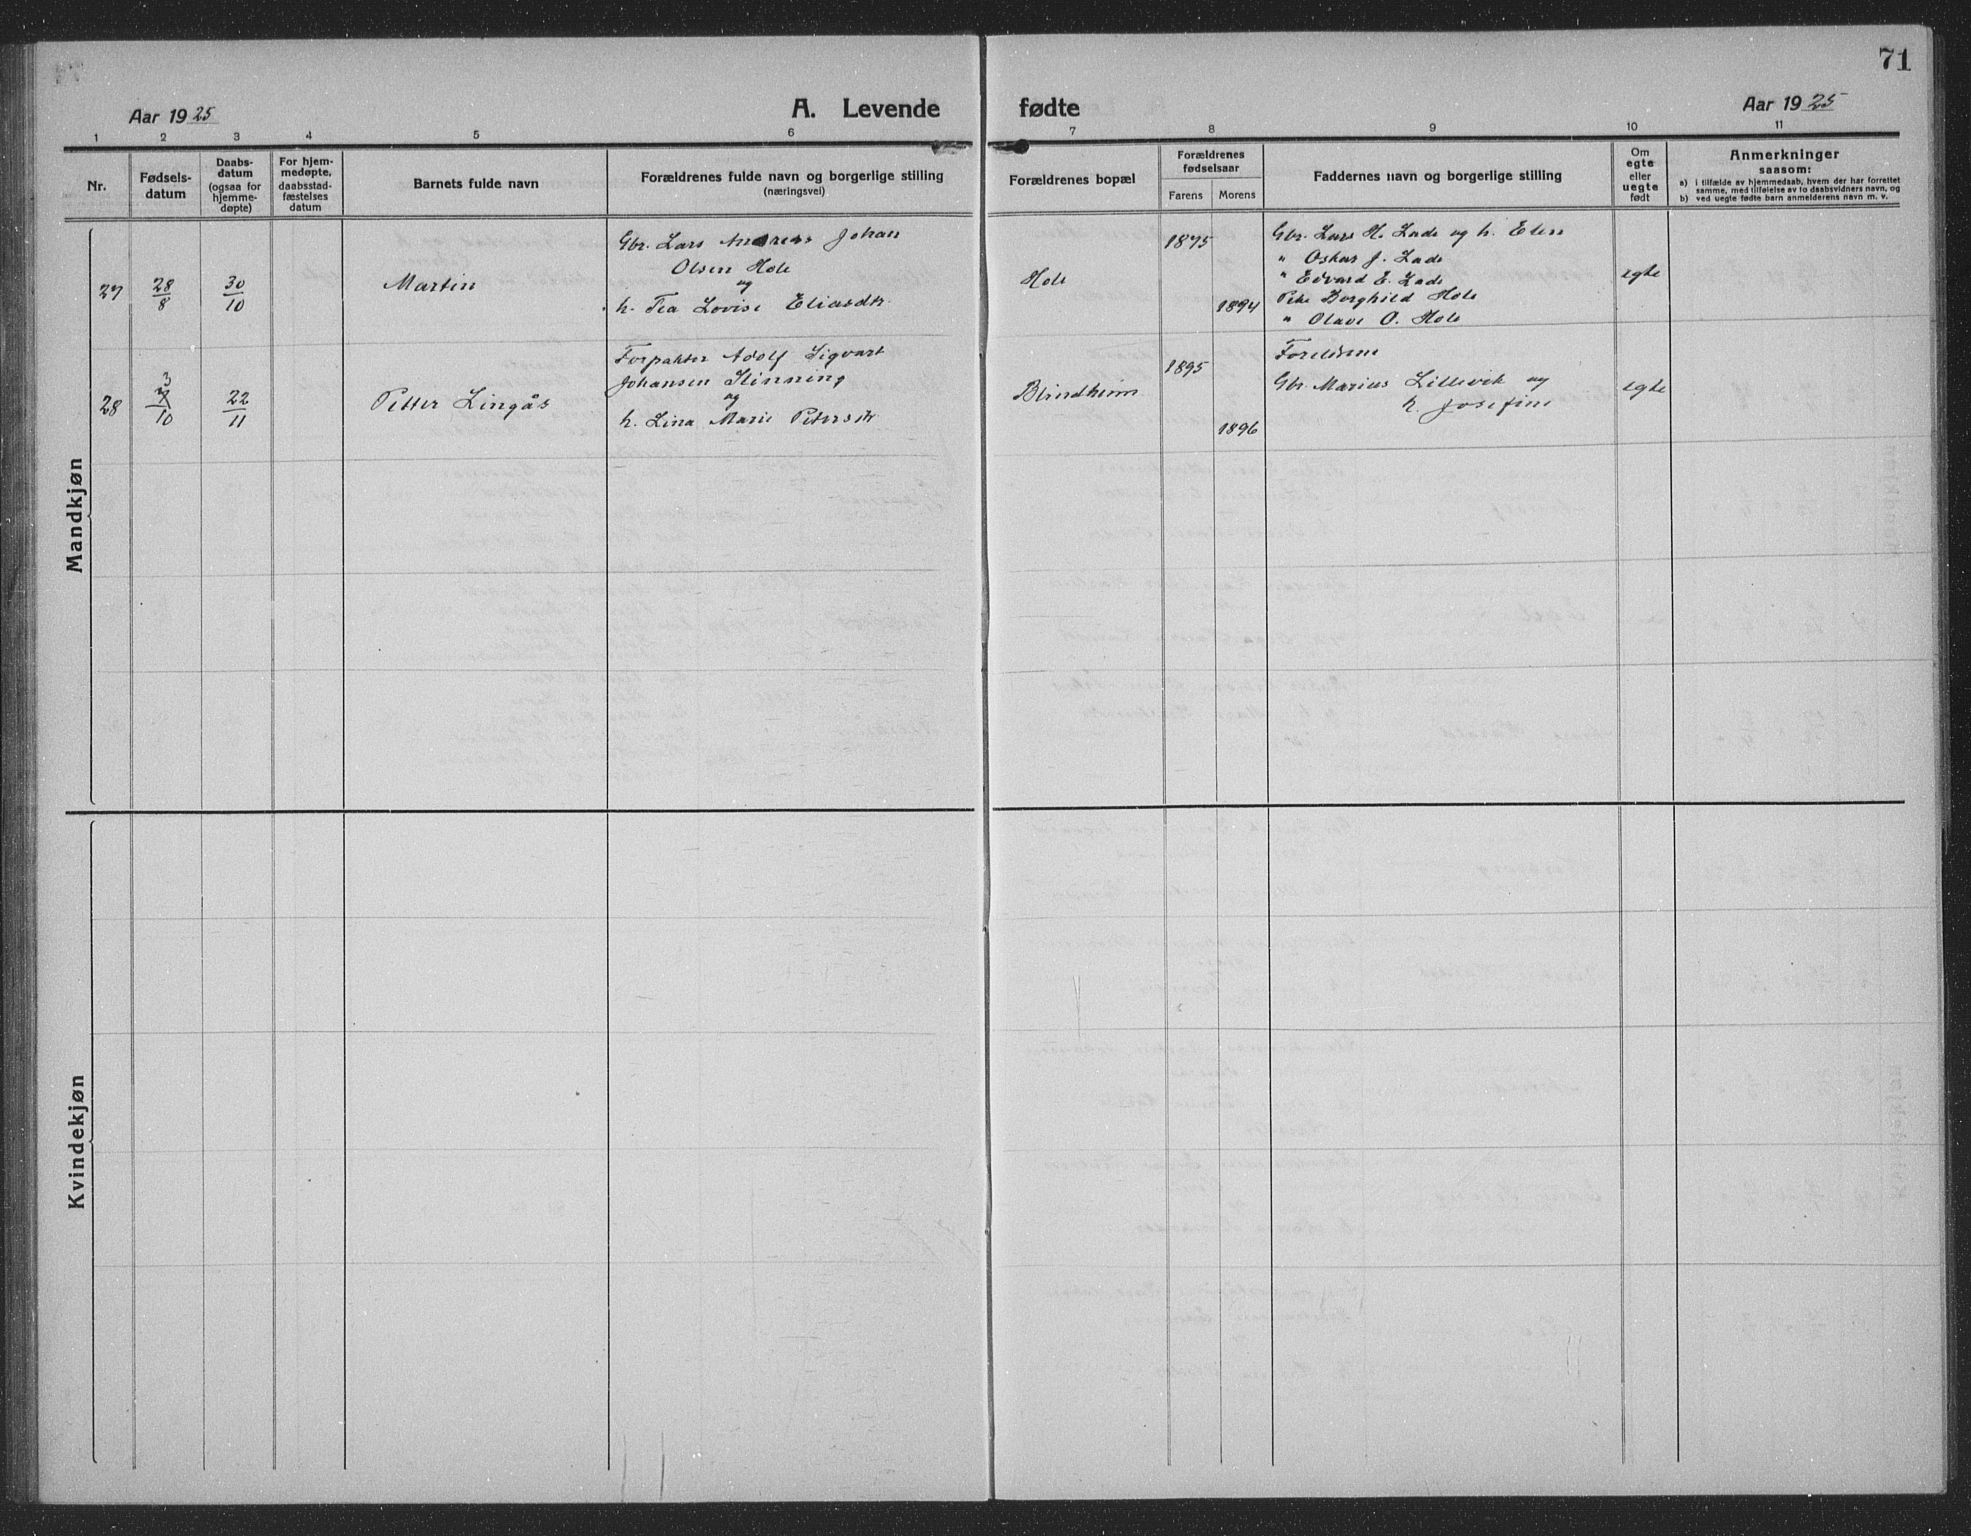 71
Aar 1925
A. Levende fødte
Aar 1925
1 2 3 4 5 6 7 8 9 10 11
Nr.
Fødsels-
datum
Daabs-
datum
(ogsaa for
hjemme-
døpte)
For hjem-
medøpte,
daabsstad-
fæstelses
datum
Barnets fulde navn
Forældrenes fulde navn og borgerlige stilling
(næringsvei)
Forældrenes bopæl
Forældrenes
fødselsaar
Farens Morens
Faddernes navn og borgerlige stilling
Om
egte
eller
uegte
født
Anmerkninger
saasom:
a) i tilfælde av hjemmedaab, hvem der har forrettet
samme, med tilføielse av to daabsvidners navn, og
b) ved uegte fødte barn anmelderens navn m. v.
Mandkjøn
27
28/8
30/10
Martin
Gbr. Lars Andreas Johan
Olsen Hole
og
h. Tea Lovise Eliasdtr.
Hole
1895
1894
Gbr. Lars H. Lade og h. Elen
" Oskar J. Lade
" Edvard E. Lade
Pike Borghild Hole
" Olave O. Hole
egte
28
3/10
22/11
Petter Lingås
Forpakter Adolf Sigvart
Johansen Slinning
og
h. Lina Marie Petersdtr
Blindheim
1895
1896
Foreldrene
Gbr. Marius Lillevik og
h. Josefine
egte
Kvindekjøn